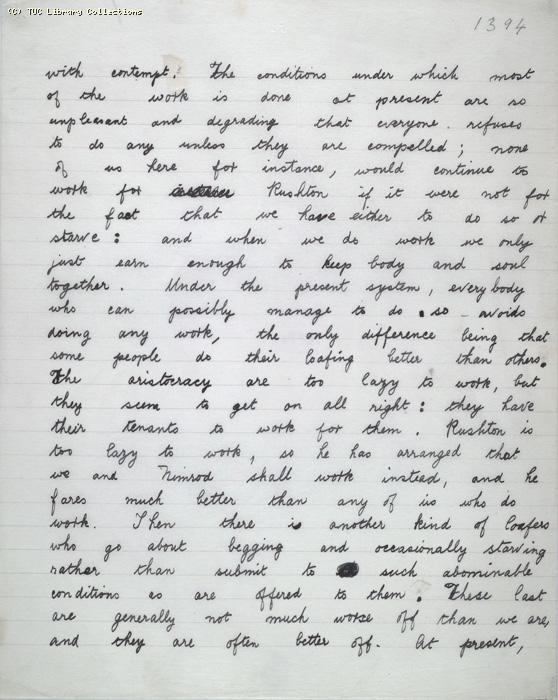 (C) TUC Library Collections
1394
with contempt. The conditions under which most
of the work is done at present are so
unpleasant and degrading that everyone refuses
to do any unless they are compelled; none
of us here for instance, would continue to
work for Rushton if it were not for
the fact that we have either to do so or
starve: and when we do work we only
just earn enough to keep body and soul
together. Under the present system, everybody
who can possibly manage to do so avoids
doing any work, the only difference being that
some people do their loafing better than others.
The aristocracy are too lazy to work, but
they seem to get on all right: they have
their tenants to work for them. Rushton is
too lazy to work, so he has arranged that
we and Nimrod shall work instead, and he
fares much better than any of us who do
work. Then there is another kind of loafers
who go about begging and occasionally starving
rather than submit to such abominable
conditions as are offered to them. These last
are generally not much worse off than we are,
and they are often better off. At present,